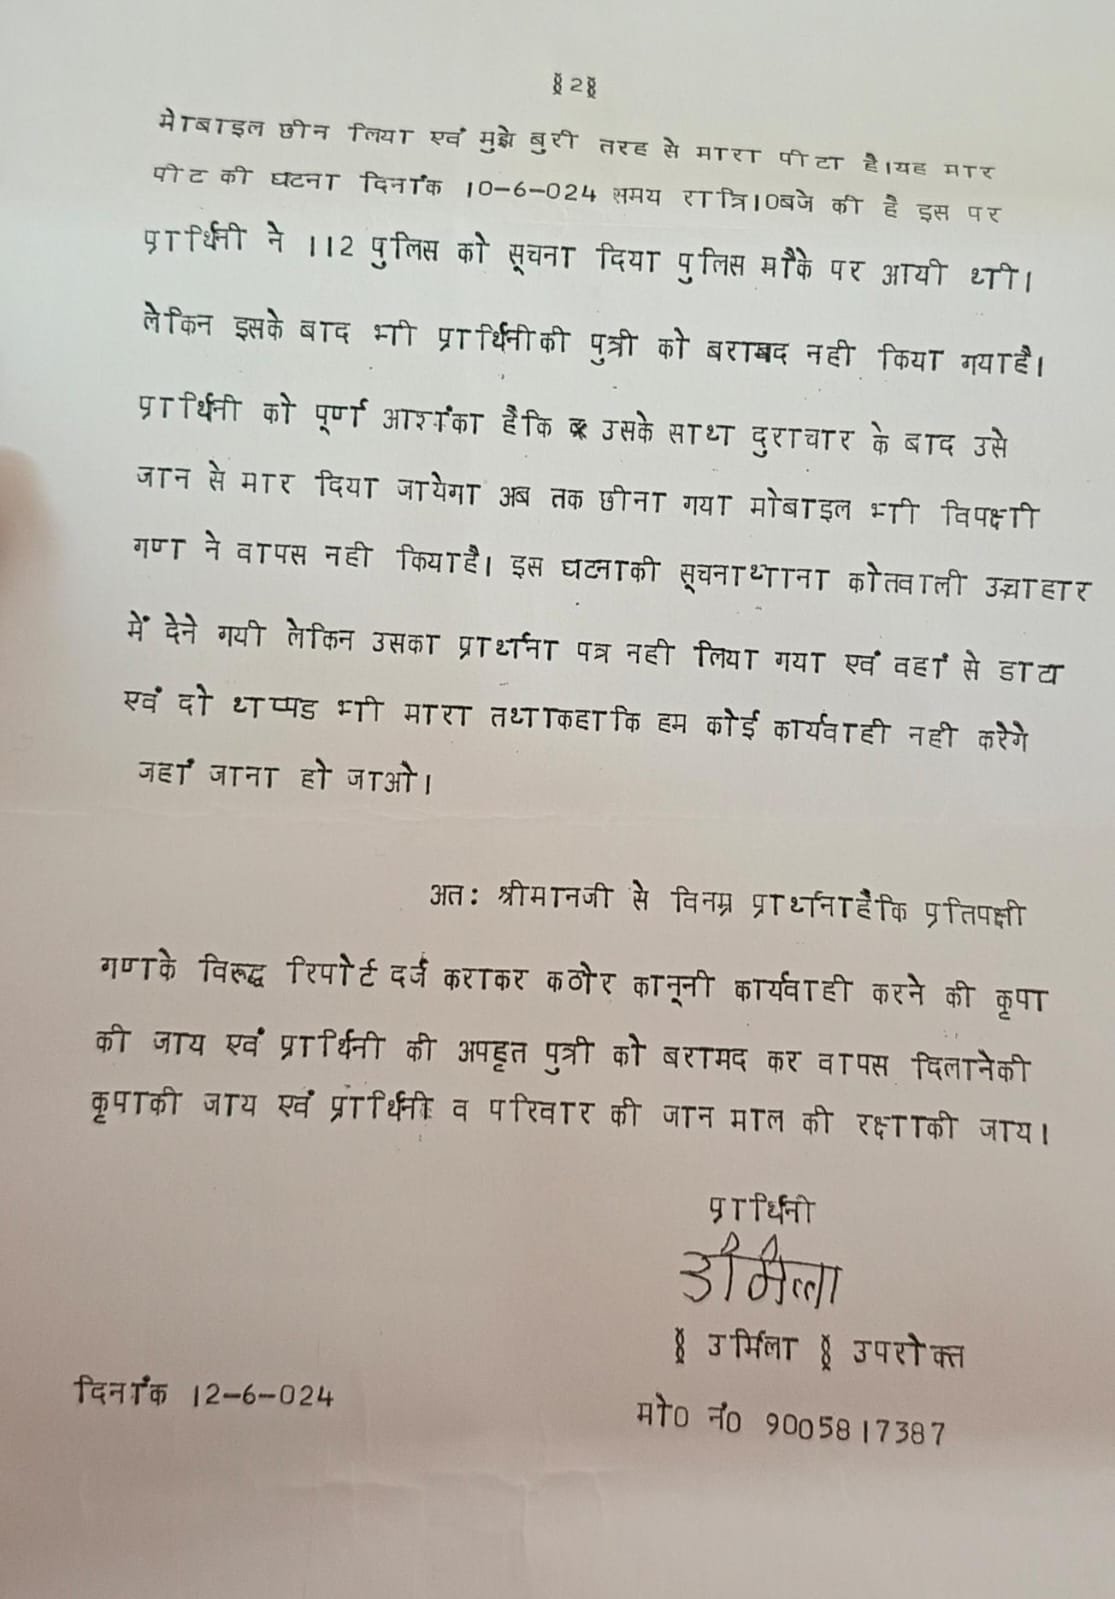 §2§
मोबाइल छीन लिया एवं मुझे बुरी तरह से मारा पीटा है।यह मार
पीट की घटना दिनांक 10-6-024 समय रात्रि10बजे की है इस पर
प्रार्थिनी ने 112 पुलिस को सूचना दिया पुलिस मौके पर आयी थी।
लेकिन इसके बाद भी प्रार्थिनीकी पुत्री को बरामद नही किया गयाहै।
प्रार्थिनी को पूर्ण आशंका हैकि उसके साथ दुराचार के बाद उसे
जान से मार दिया जायेगा अब तक छीना गया मोबाइल भी विपक्षी
गण ने वापस नही कियाहै। इस घटनाकी सूचनाथाना कोतवाली उन्चाहार
में देने गयी लेकिन उसका प्रार्थना पत्र नही लिया गया एवं वहां से डाटा
एवं दो थप्पड भी मारा तथाकहाकि हम कोई कार्यवाही नही करेगे
जहां जाना हो जाओ।
अत: श्रीमानजी से विनम्र प्रार्थनाहैकि प्रतिपक्षी
गणके विरूद्ध रिपोर्ट दर्ज कराकर कठोर कानूनी कार्यवाही करने की कृपा
की जाय एवं प्रार्थिनी की अपहृत पुत्री को बरामद कर वापस दिलानेकी
कृपाकी जाय एवं प्रार्थिनी व परिवार की जान माल की रक्षाकी जाय।
प्रार्थिनी
उर्मिला
§ उर्मिला § उपरोक्त
दिनांक 12-6-024
मो0 नं0 9005817387